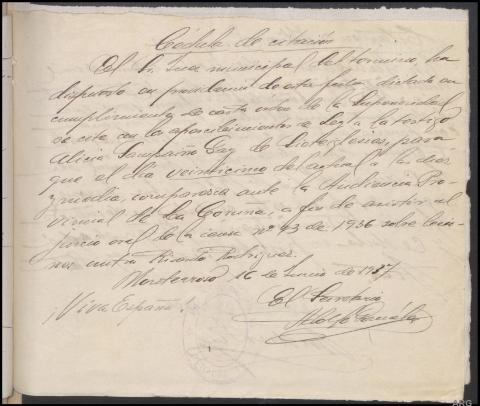 Cédula de citación
El Sr. Juez municipal del término, ha
dispuesto en providencia de esta fecha dictada en
cumplimiento de carta orden de la Superioridad
se cite con los apercibimientos de Ley a la testigo
Alicia Sampaíño Gay de Sieteiglesias, para
que el día veinticinco del actual a las diez
y media, comparezca ante la Audiencia Pro-
vincial de La Coruña, a fin de asistir al
juicio oral de la causa nº 93 de 1936 sobre lesio-
nes contra Ricardo Rodríguez.
Monterroso, 16 de Junio de 1937
El Secretario
¡Viva España!
Adolfo González
1
ARG